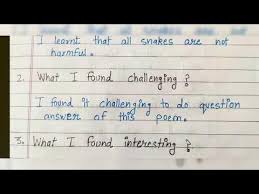 I learnt that all snakes are not
harmful.
2. What I found challenging ?
I found it challenging to do question
answer of this poem.
3. What I found interesting ?